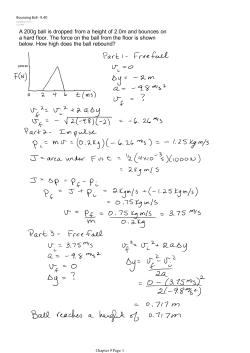 Bouncing Ball - 9.40
A 200g ball is dropped from a height of 2.0m and bounces on
a hard floor. The force on the ball from the floor is shown
below. How high does the ball rebound?
Part 1 - Freefall
v_i = 0
Δy = -2m
a = -9.8 m/s²
v_f = ?
F(N)
0 2 4 6 t(ms)
v_f² = v_i² + 2aΔy
v_f = -√2(-9.8)(-2) = -6.26 m/s
Part 2 - Impulse
p_i = mv = (0.2kg)(-6.26 m/s) = -1.25 kg m/s
J = area under F vs t = ½(4x10⁻³s)(1000N)
= 2 kg m/s
J = Δp = p_f - p_i
p_f = J + p_i = 2 kg m/s + (-1.25 kg m/s)
= 0.75 kg m/s
v = p_f/m = 0.75 kg m/s / 0.2kg = 3.75 m/s
Part 3 - Freefall
v_i = 3.75 m/s
a = -9.8 m/s²
v_f = 0
Δy = ?
v_f² = v_i² + 2aΔy
Δy = v_f² - v_i² / 2a
= 0 - (3.75 m/s)² / 2(-9.8 m/s²)
= 0.717 m
Ball reaches a height of 0.717m
Chapter 9 Page 1